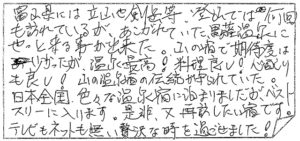 富山県には立山や剣岳等、登山では何回
も訪れているが、あこがれていた、黒薙温泉に
やっと来る事が出来た。山の宿で期待度は
薄いかったが、温泉最高！料理良し！人心地
も良し！山の温泉宿の伝統が守られていた。
日本全国、色々な温泉宿に泊まりましたがベスト
スリーに入ります。是非、又再訪したい宿です。
テレビもネットも無い贅沢な時を過ごせました！